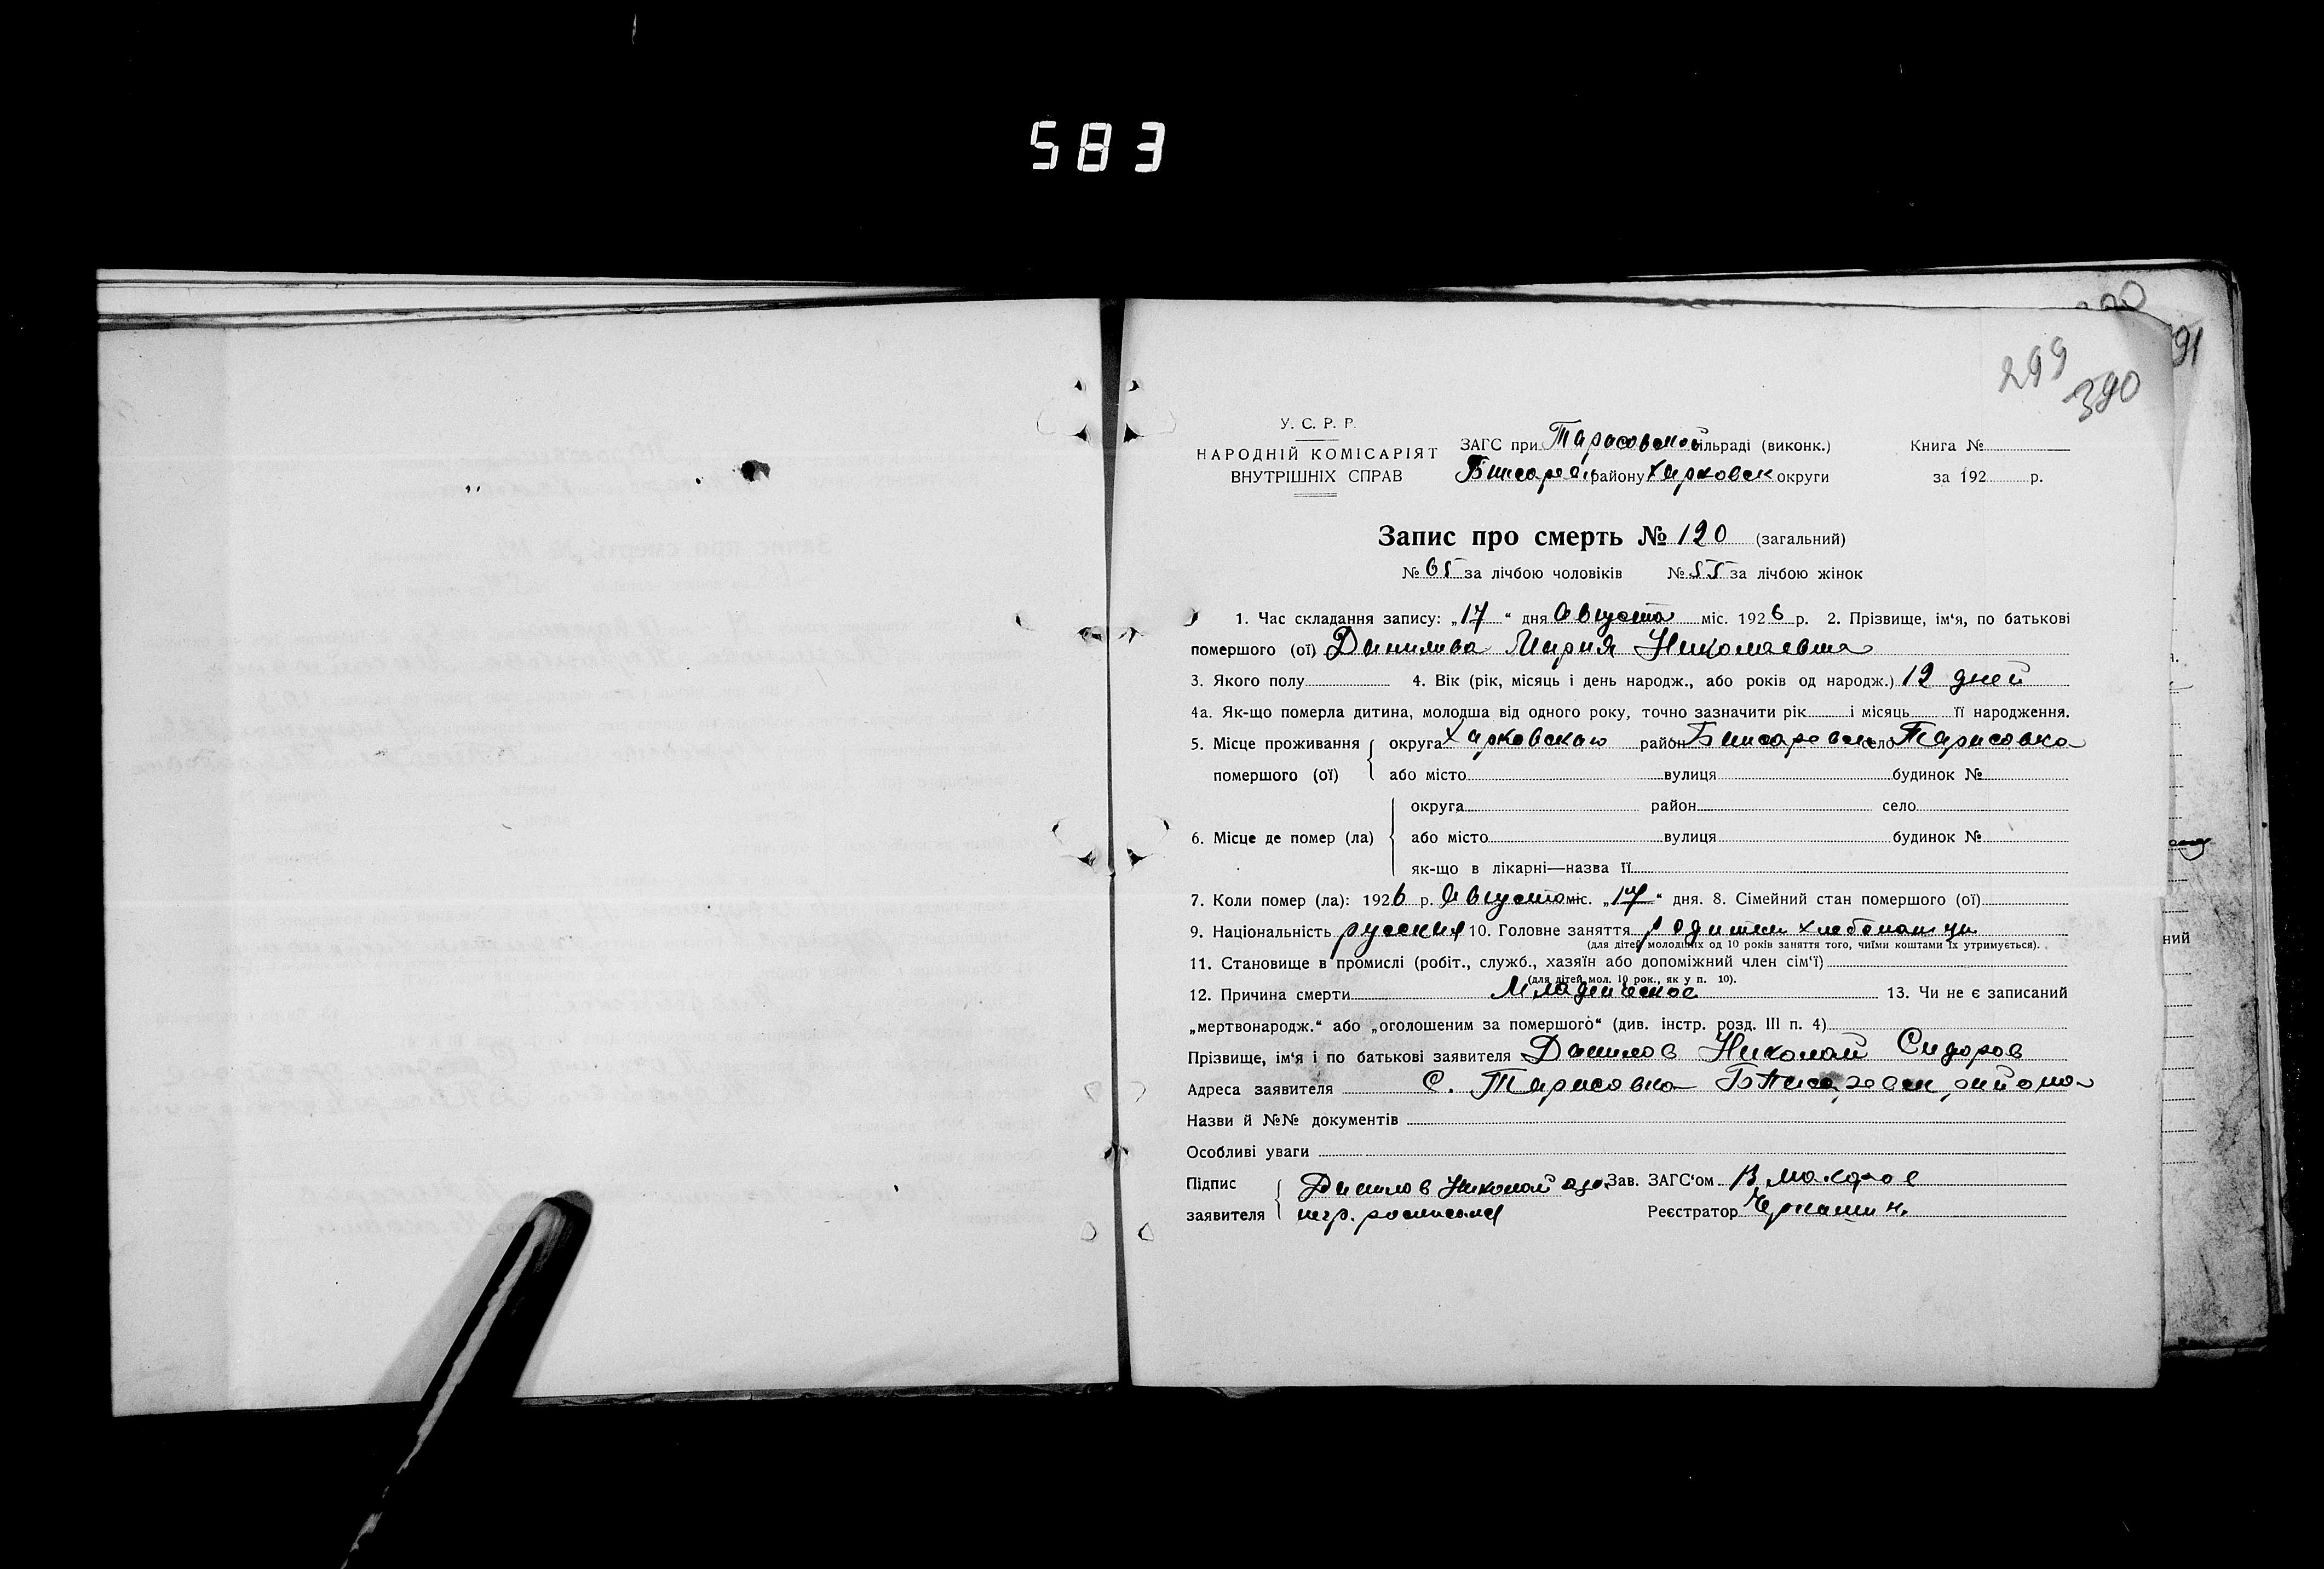 583
299
390
91
У. С. Р. Р.
НАРОДНІЙ КОМІСАРІЯТ
ВНУТРІШНІХ СПРАВ
ЗАГС при Тарасовской сільраді (виконк.)
району Харковск округи
Книга №
за 192 р.
Запис про смерть № 120 (загальний)
№ 65 за лічбою чоловіків № 55 за лічбою жінок
1. Час складання запису: „17“ дня Августа міс. 1926 р. 2. Прізвище, ім'я, по батькові
помершого (ої) Данилова Мария Николаевна
3. Якого полу 4. Вік (рік, місяць і день народж., або років од народж.) 12 дней
4а. Як-що померла дитина, молодша від одного року, точно зазначити рік і місяць її народження.
5. Місце проживання округа Харковскаю район Бписаревск село Тарасовка
помершого (ої) або місто вулиця будинок №
округа район село
6. Місце де помер (ла) або місто вулиця будинок №
як-що в лікарні—назва її
7. Коли помер (ла): 1926 р. Августа міс. „17“ дня. 8. Сімейний стан помершого (ої)
9. Національність русския 10. Головне заняття родители хлебопашцы
(для дітей молодших од 10 років заняття того, чиїми коштами їх утримується).
11. Становище в промислі (робіт., служб., хазяїн або допоміжний член сім'ї)
(для дітей мол. 10 рок., як у п. 10).
12. Причина смерти Младенческое 13. Чи не є записаний
„мертвонародж.“ або „оголошеним за помершого“ (див. інстр. розд. III п. 4)
Прізвище, ім'я і по батькові заявителя Данилов Николай Сидоров
Адреса заявителя С. Тарасовка БПисаревск района
Назви й №№ документів
Особливі уваги
Підпис Данилов Николай Зав. ЗАГС'ом
заявителя негр. росписался Реєстратор